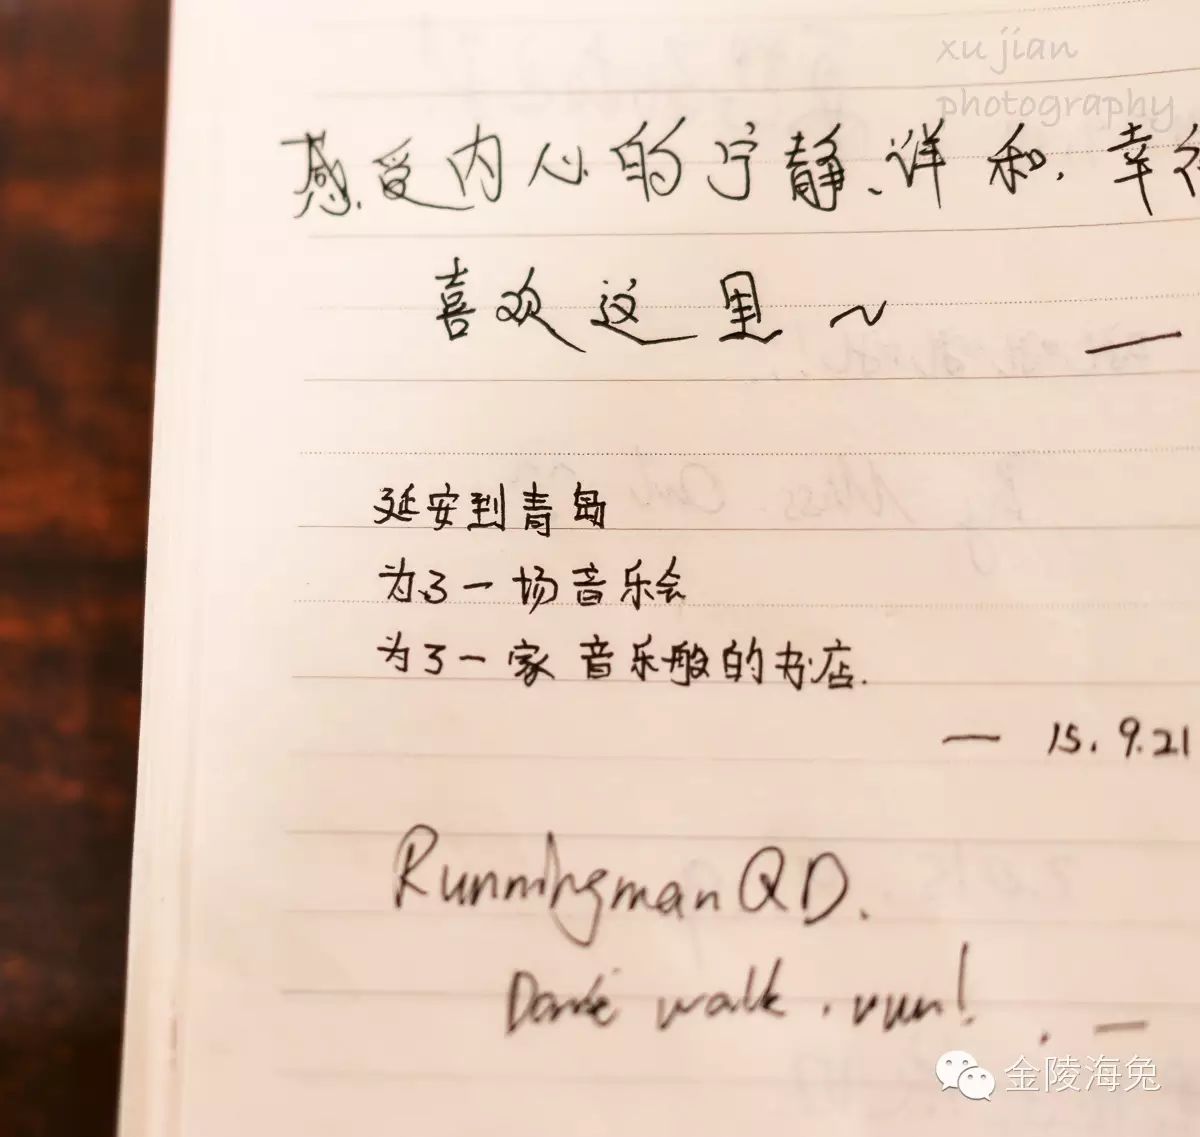 xu jian
photography
感受内心的宁静、详和、幸
喜欢这里~ —
延安到青岛
为了一场音乐会
为了一家音乐般的书店.
— 15. 9.21
Runningman QD.
Don't walk . run! . —
金陵海兔